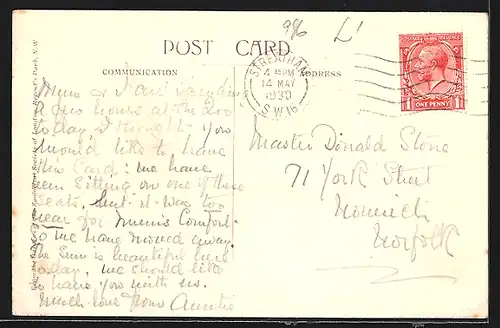 9/6 L1
POST CARD
COMMUNICATION
ADDRESS
STREATHAM
4 PM
14 MAY
1930
S.W.16
POSTAGE REVENUE
ONE PENNY
Mum & I are
a house at the Zoo
today I thought you
would like to have
this Card: we have
been sitting on one of these
seats, but it was too
near for Mum's Comfort
So we have moved away.
The Sun is beautiful here
today, we should like
to have you with us.
Much love from Auntie
Master Donald Stone
71 York Street
Norwich
Norfolk